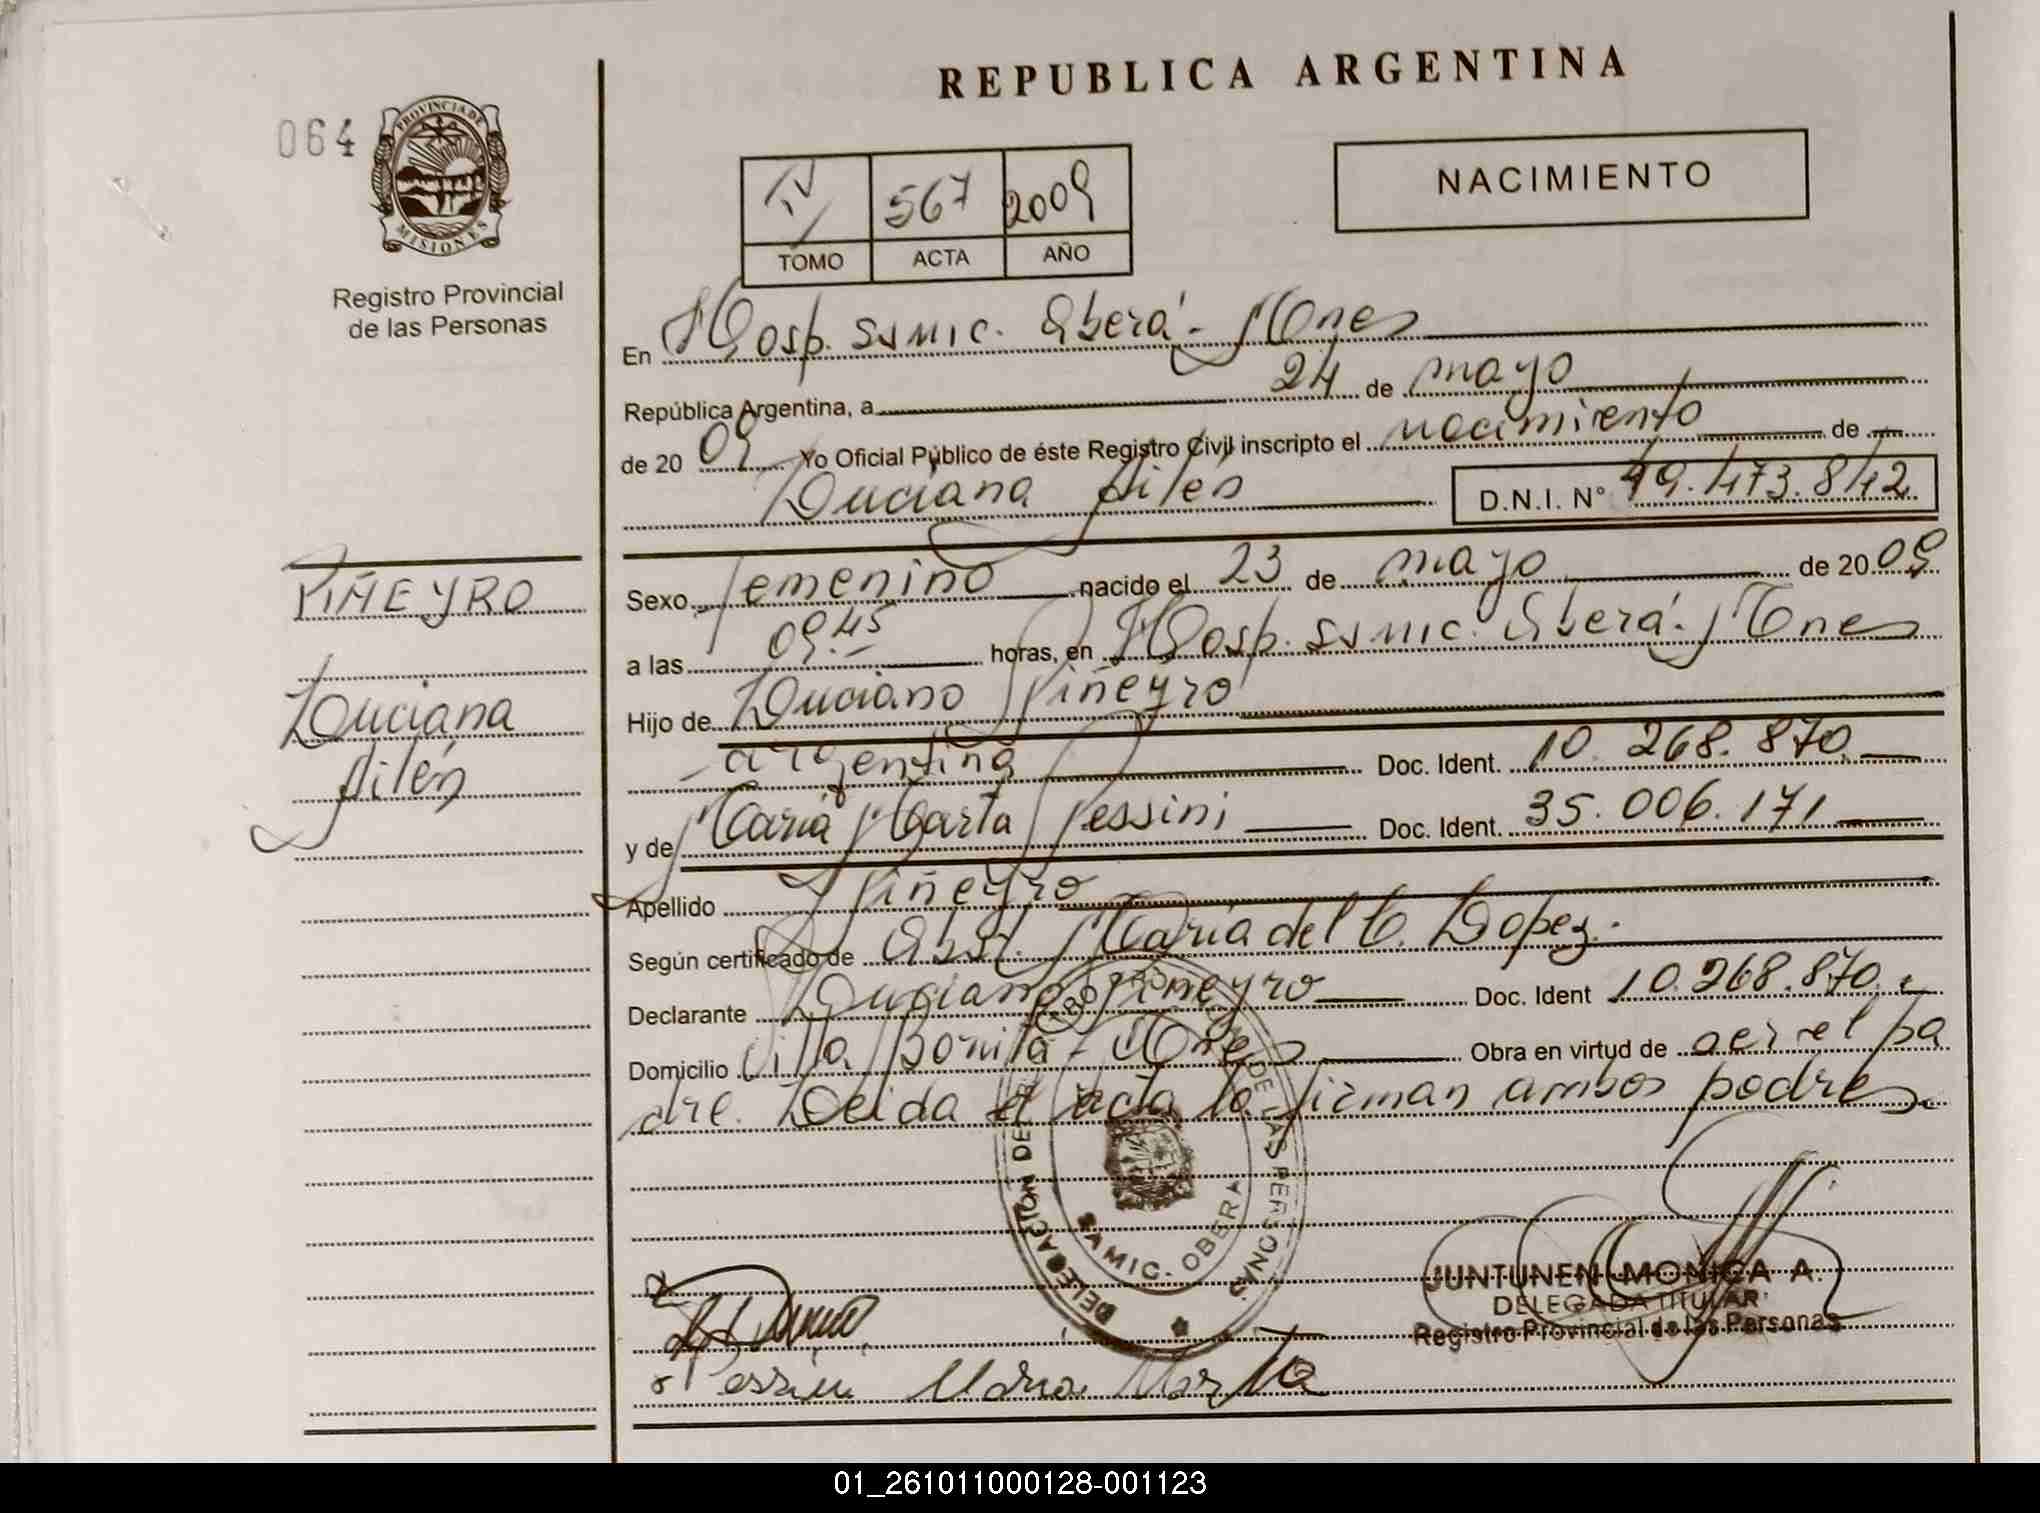 REPUBLICA ARGENTINA
064
PROVINCIA DE
MISIONES
Registro Provincial
de las Personas
NACIMIENTO
IV 567 2009
TOMO ACTA AÑO
En Hosp. SAMIC. Oberá - Mnes
República Argentina, a 24 de mayo
de 2009 Yo Oficial Público de éste Registro Civil inscripto el nacimiento de
Luciana Ailén D.N.I. N° 49.473.842
PIÑEYRO
Luciana
Ailén
Sexo femenino nacido el 23 de mayo de 2009
a las 09.45 horas, en Hosp. SAMIC. Oberá - Mnes
Hijo de Luciano Piñeyro
argentina Doc. Ident. 10.268.870
y de María Marta Pessini Doc. Ident. 35.006.171
Apellido Piñeyro
Según certificado de Obst. María del C. Lopez.
Declarante Luciano Piñeyro Doc. Ident 10.268.870
Domicilio Villa Bonita - Mnes Obra en virtud de ser el pa
dre. Leida el acta la firman ambos padres.
DELEGACION DE DE LAS PERSONAS
SAMIC. OBERA
JUNTUNEN MONICA A.
DELEGADA TITULAR
Registro Provincial de las Personas
Pessini Maria Marta
01_261011000128-001123